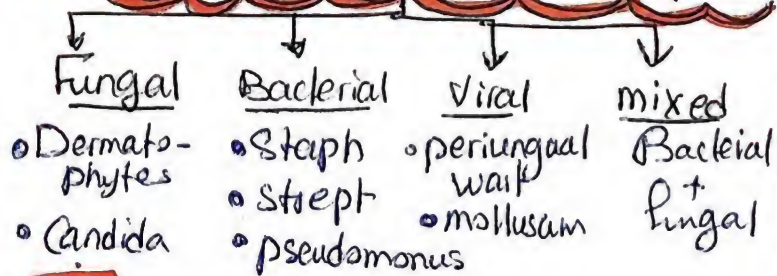 Fungal
• Dermato-
phytes
• Candida
Bacterial
• Staph
• strept
• pseudomonus
Viral
• periungaal
wart
• mollusam
mixed
Bacteial
+
fungal